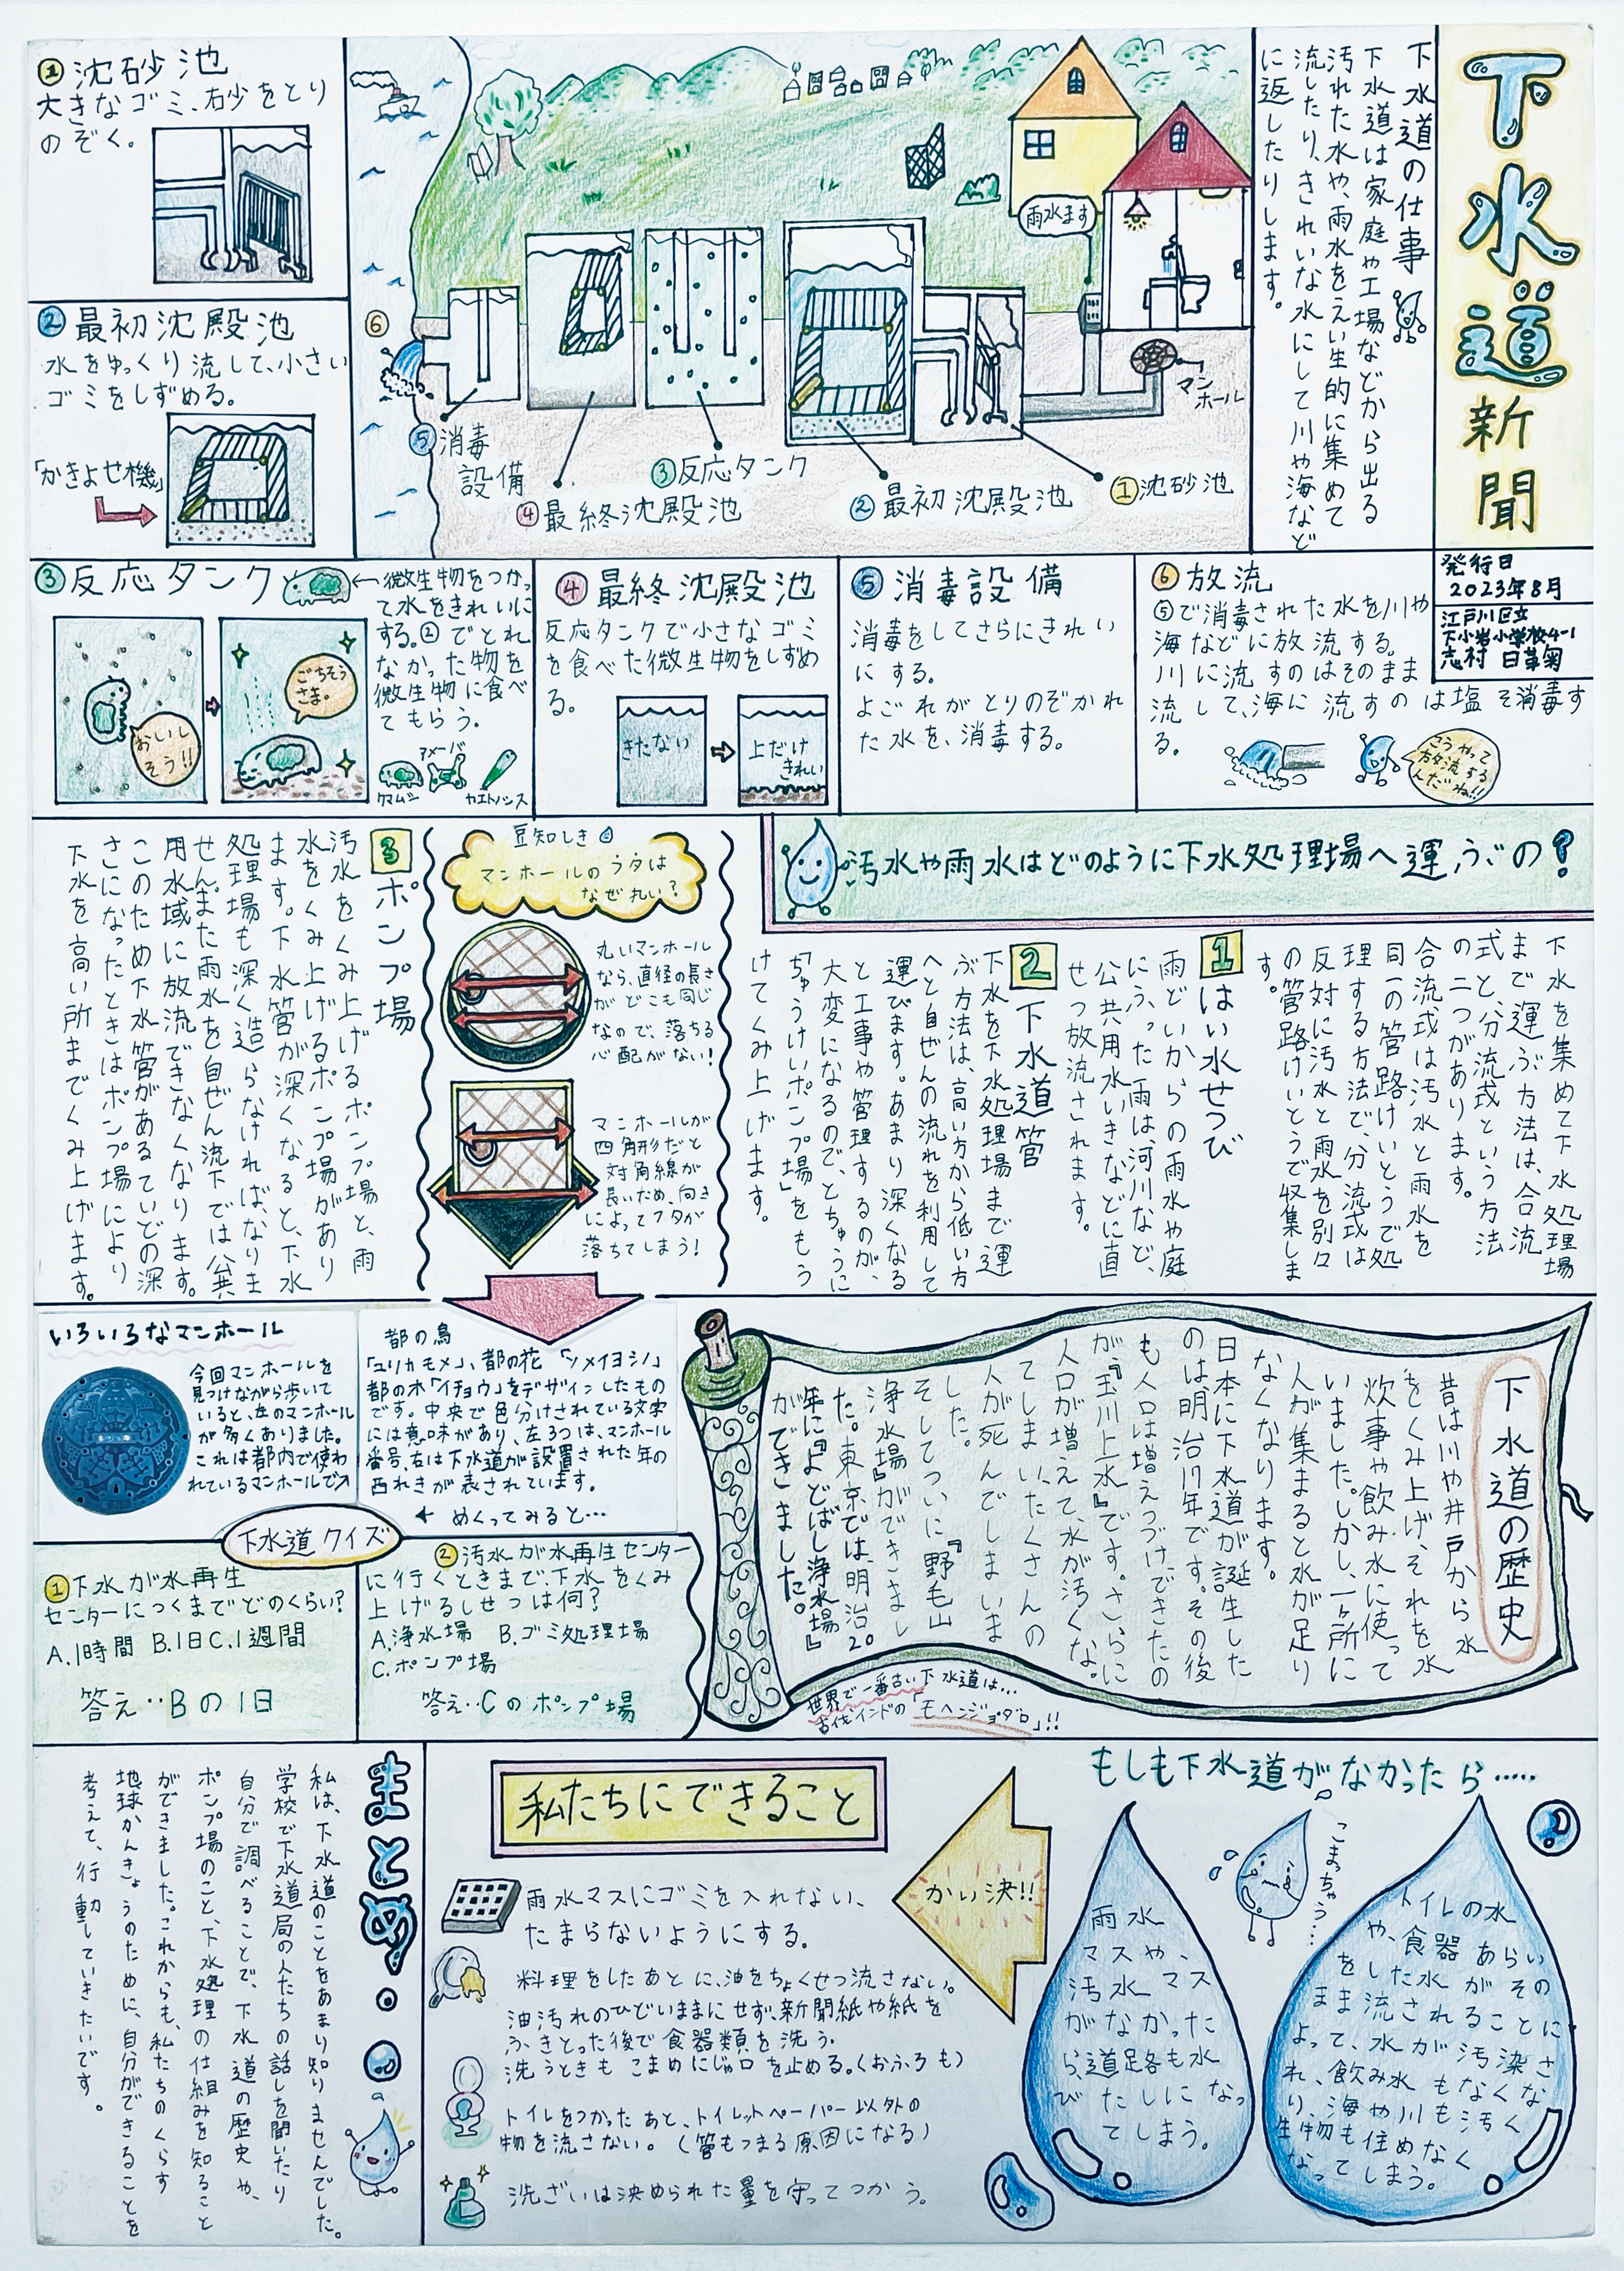 下水道新聞
発行日
2023年8月
江戸川区立
下小岩小学校4-1
志村 日菜菊
下水道の仕事
下水道は家庭や工場などから出る
汚れた水や、雨水をえい生的に集めて
流したり、きれいな水にして川や海など
に返したりします。
雨水ます
マン
ホール
①沈砂池
②最初沈殿池
③反応タンク
④最終沈殿池
⑤消毒
設備
⑥
①沈砂池
大きなゴミ、砂をとり
のぞく。
②最初沈殿池
水をゆっくり流して、小さい
ゴミをしずめる。
「かきよせ機」
③反応タンク
←微生物をつかっ
て水をきれいに
する。②でとれ
なかった物を
微生物に食べ
てもらう。
おいし
そう!!
ごちそう
さま。
クマムシ
アメーバ
④最終沈殿池
反応タンクで小さなゴミ
を食べた微生物をしずめ
る。
きたない
上だけ
きれい
⑤消毒設備
消毒をしてさらにきれい
にする。
よごれがとりのぞかれ
た水を、消毒する。
⑥放流
⑤で消毒された水を川や
海などに放流する。
川に流すのはそのまま
流して、海に流すのは塩そ消毒す
る。
こうやって
放流する
んだね!!
汚水や雨水はどのように下水処理場へ運ぶの?
下水を集めて下水処理場
まで運ぶ方法は、合流
式と、分流式という方法
の二つがあります。
合流式は汚水と雨水を
同一の管路けいとうで処
理する方法で、分流式は
反対に汚水と雨水を別々
の管路けいとうで収集しま
す。
1はい水せつび
雨どいからの雨水や庭
にふった雨は、河川など、
公共用水いきなどに直
せつ放流されます。
2下水道管
下水を下水処理場まで運
ぶ方法は、高い方から低い方
へと自ぜんの流れを利用して
運びます。あまり深くなる
と工事や管理するのが、
大変になるので、とちゅうに
「ちゅうけいポンプ場」をもう
けてくみ上げます。
豆知しき
マンホールのフタは
なぜ丸い?
丸いマンホール
なら、直径の長さ
がどこも同じ
なので、落ちる
心配がない!
マンホールが
四角形だと
対角線が
長いため、向き
によってフタが
落ちてしまう!
3ポンプ場
汚水をくみ上げるポンプ場と、雨
水をくみ上げるポンプ場があり
ます。下水管が深くなると、下水
処理場も深く造らなければなりま
せん。また雨水を自ぜん流下では公共
用水域に放流できなくなります。
このため下水管があるていどの深
さになったときはポンプ場により
下水を高い所までくみ上げます。
いろいろなマンホール
今回マンホールを
見つけながら歩いて
いると、左のマンホール
が多くありました。
これは都内で使わ
れているマンホールで↗
都の鳥
「ユリカモメ」、都の花「ソメイヨシノ」
都の木「イチョウ」をデザインしたもの
です。中央で色分けされている文字
には意味があり、左3つは、マンホール
番号、右は下水道が設置された年の
西れきが表されています。
← めくってみると…
下水道の歴史
昔は川や井戸から水
をくみ上げ、それを水
炊事や飲み水に使って
いました。しかし、一ヶ所に
人が集まると水が足り
なくなります。
日本に下水道が誕生した
のは明治17年です。その後
も人口は増えつづけ、できたの
が『玉川上水』です。さらに
人口が増えて、水が汚くな。
てしまい、たくさんの
人が死んでしまいま
した。
そしてついに『野毛山
浄水場』ができまし
た。東京では、明治20
年に『よどばし浄水場』
ができました。
世界で一番古い下水道は…
古代インドの「モヘンジョダロ」!!
下水道クイズ
①下水が水再生
センターにつくまでどのくらい?
A.1時間 B.1日C.1週間
答え‥Bの1日
②汚水が水再生センター
に行くときまで、下水をくみ
上げるしせつは何?
A.浄水場 B.ゴミ処理場
C.ポンプ場
答え‥Cのポンプ場
もしも下水道がなかったら……
トイレの水
や、食器あらい
をした水がその
まま流されることに
よって、水が汚染さ
れ、飲み水もなくな
り、海や川も汚く
生物も住めなく
なってしまう。
こまっちゃう…
雨水
マスや、
汚水マス
がなかった
ら、道路も水
びたしになっ
てしまう。
かい決!!
私たちにできること
雨水マスにゴミを入れない、
たまらないようにする。
料理をしたあとに、油をちょくせつ流さない。
油汚れのひどいままにせず、新聞紙や紙を
ふきとった後で食器類を洗う。
洗うときもこまめにじゃ口を止める。(おふろも)
トイレをつかったあと、トイレットペーパー以外の
物を流さない。(管もつまる原因になる)
洗ざいは決められた量を守ってつかう。
まとめ
私は、下水道のことをあまり知りませんでした。
学校で下水道局の人たちの話しを聞いたり
自分で調べることで、下水道の歴史や、
ポンプ場のこと、下水処理の仕組みを知ること
ができました。これからも、私たちのくらす
地球かんきょうのために、自分ができることを
考えて、行動していきたいです。